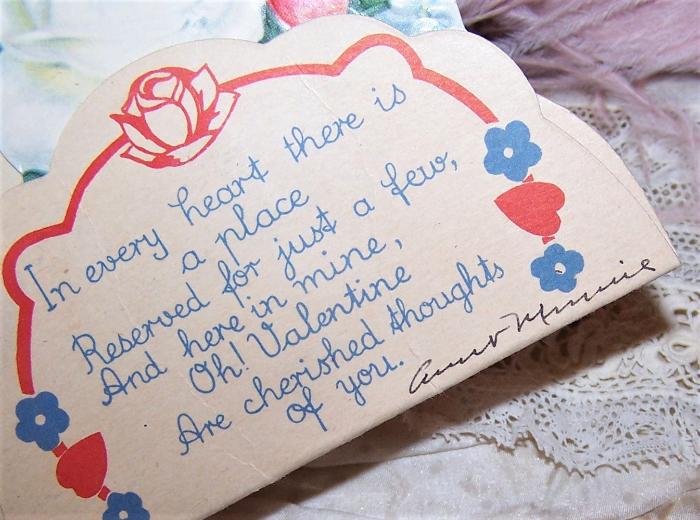 In every heart there is
a place
Reserved for just a few,
And here in mine,
Oh! Valentine
Are cherished thoughts
of you.
Aunt Minnie